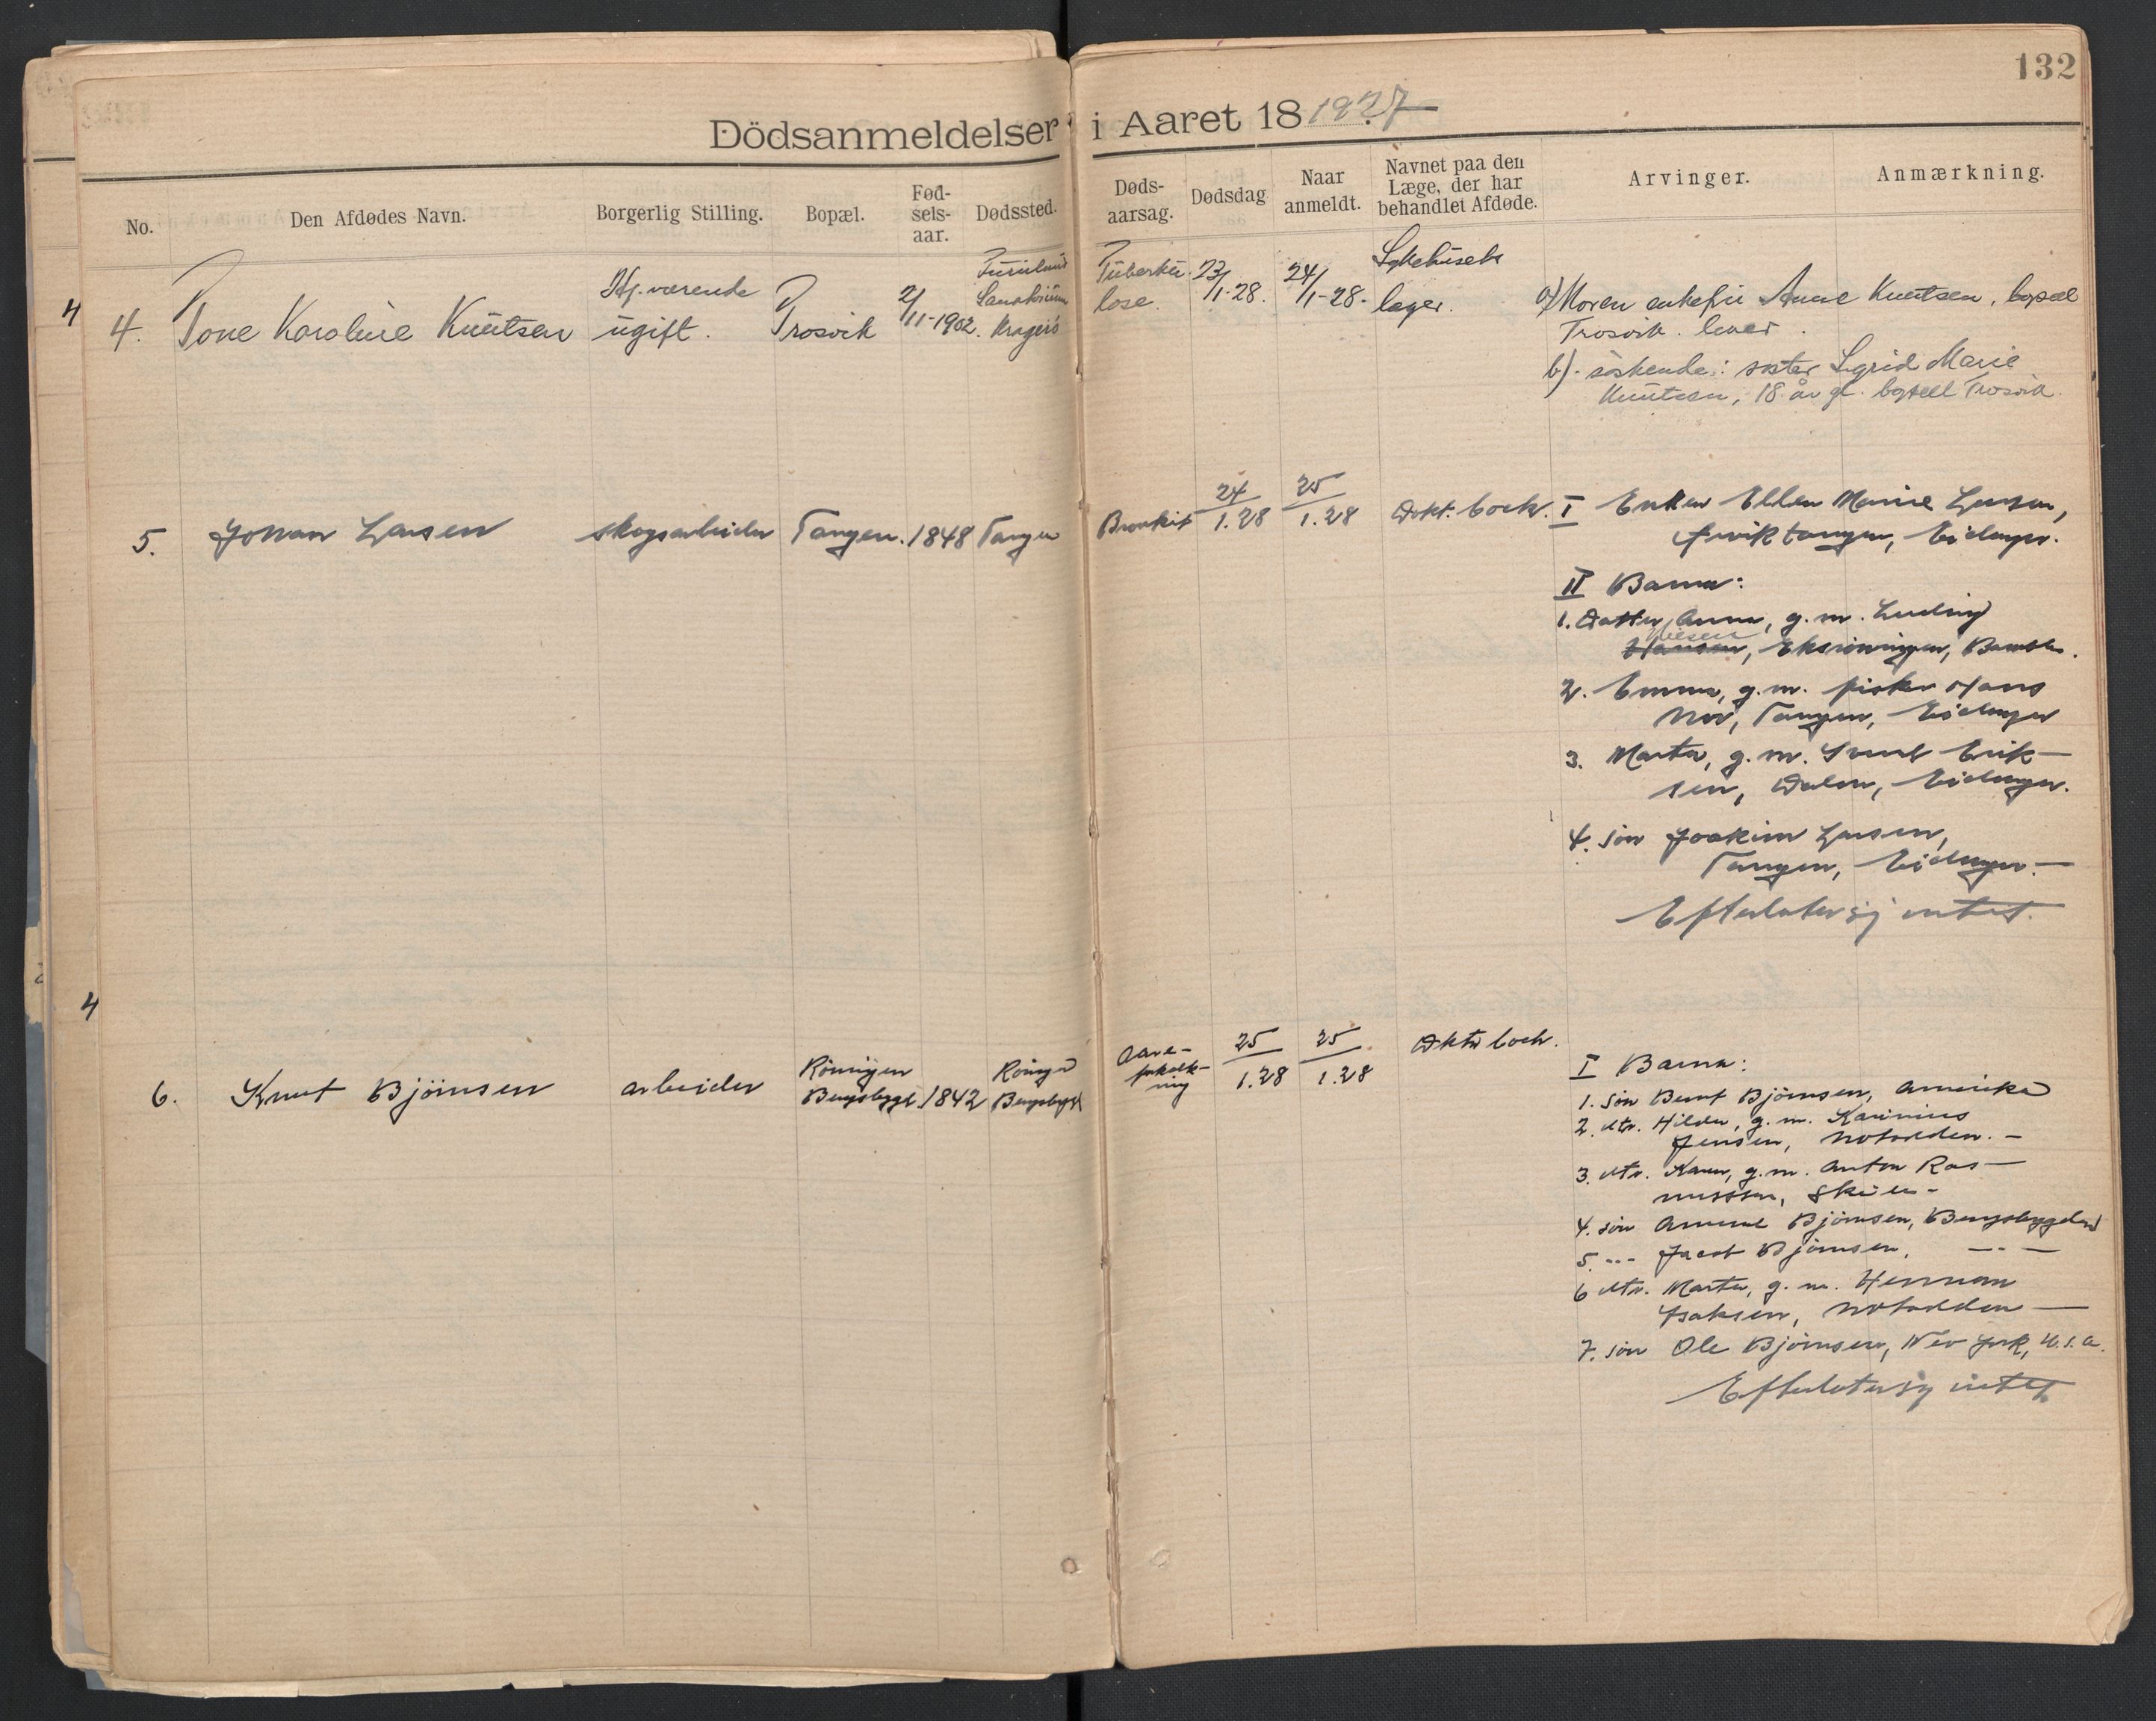 132
Dödsanmeldelser i Aaret 18 1927
No.
Den Afdødes Navn.
Borgerlig Stilling.
Bopæl.
Fød-
sels-
aar.
Dødssted.
Døds-
aarsag.
Dødsdag
Naar
anmeldt.
Navnet paa den
Læge, der har
behandlet Afdøde.
Arvinger.
Anmærkning.
4
4. Tone Karoline Knutsen
Hj. værende
ugift.
Trosvik
2/11-1902.
Furulund
Sanatorium
Kragerö
Tuberku-
lose.
23/1-28.
24/1-28.
Sykehusets
læger.
a) Moren enkefru Anne Knutsen, bopæl
Trosvik. lever.
b). söskende: søster Sigrid Marie
Knutsen, 18 år gl. bopæll Trosvik.
5. Johan Larsen
skogsarbeider
Tangen.
1848
Tangen
Bronkit
24
1.28
25
1.28
Dokt. Bock.
I Enken Ellen Marie Larsen,
Tangen, Eidanger.
II Barna:
1. Datter Anna, g. m. Ludvig
Hansen, Bamble.
2. Emma, g. m. fisker Hans
Tangen, Eidanger
3. Marta, g. m. Erik-
sen, Dalen, Eidanger.
4. sön Joakim Larsen,
Tangen, Eidanger.-
Efterlater sig intet.
4
6. Knut Björnsen
arbeider
Röningen
Bergsbygd.
1842
Röningen
Bergsbygd
Aare-
forkalk-
ning
25
1.28
25
1.28
Dktr Bock.
I Barna:
1. sön Bernt Björnsen, Amerika
2. dtr. Hilda, g. m.
Jensen, Notodden.-
3. dtr. g. m. Anton Ras-
mussen, Skien-
4. sön Björnsen, Bergsbygden
5. -"- Jacob Björnsen, -"-
6 dtr. Marta, g. m. Herman
Isaksen, Notodden-
7. sön Ole Björnsen, New York, U.S.A.
Efterlater sig intet